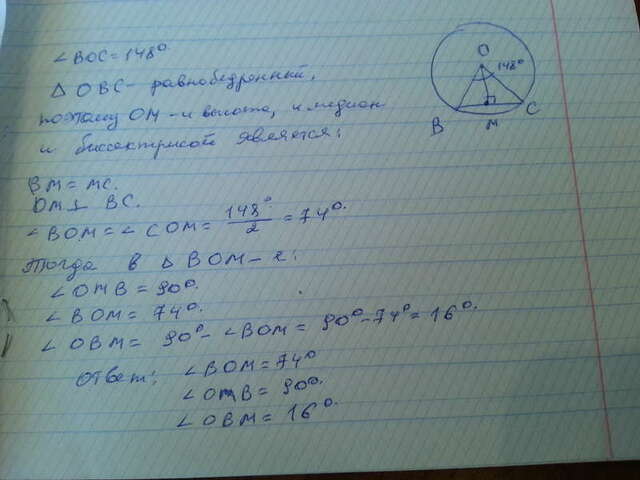 ∠BOC = 148°.
△ OBC - равнобедренный,
поэтому OM - и высота, и медиан
и биссектрисой является:
BM = MC.
OM ⊥ BC.
∠BOM = ∠COM = 148°/2 = 74°.
Тогда в △ BOM - е:
∠OMB = 90°.
∠BOM = 74°.
∠OBM = 90° - ∠BOM = 90° - 74° = 16°.
Ответ: ∠BOM = 74°
∠OMB = 90°.
∠OBM = 16°.
O
148°
B
M
C